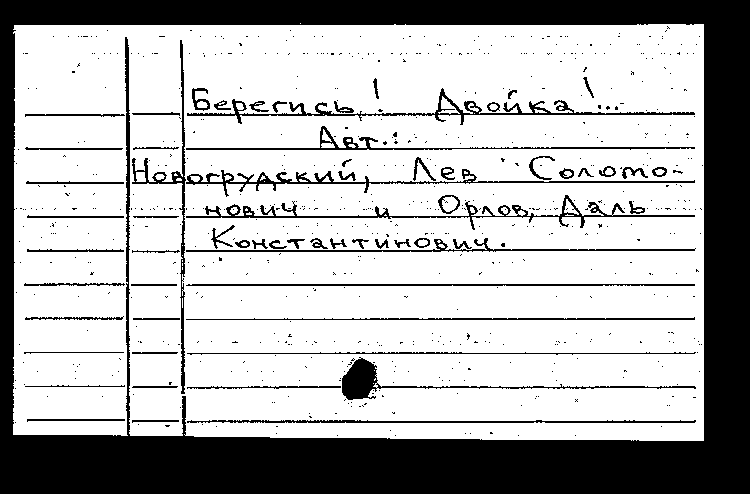 Берегись! Двойка!...
Авт.:
Новогрудский, Лев Солото-
нович и Орлов, Даль
Константинович.